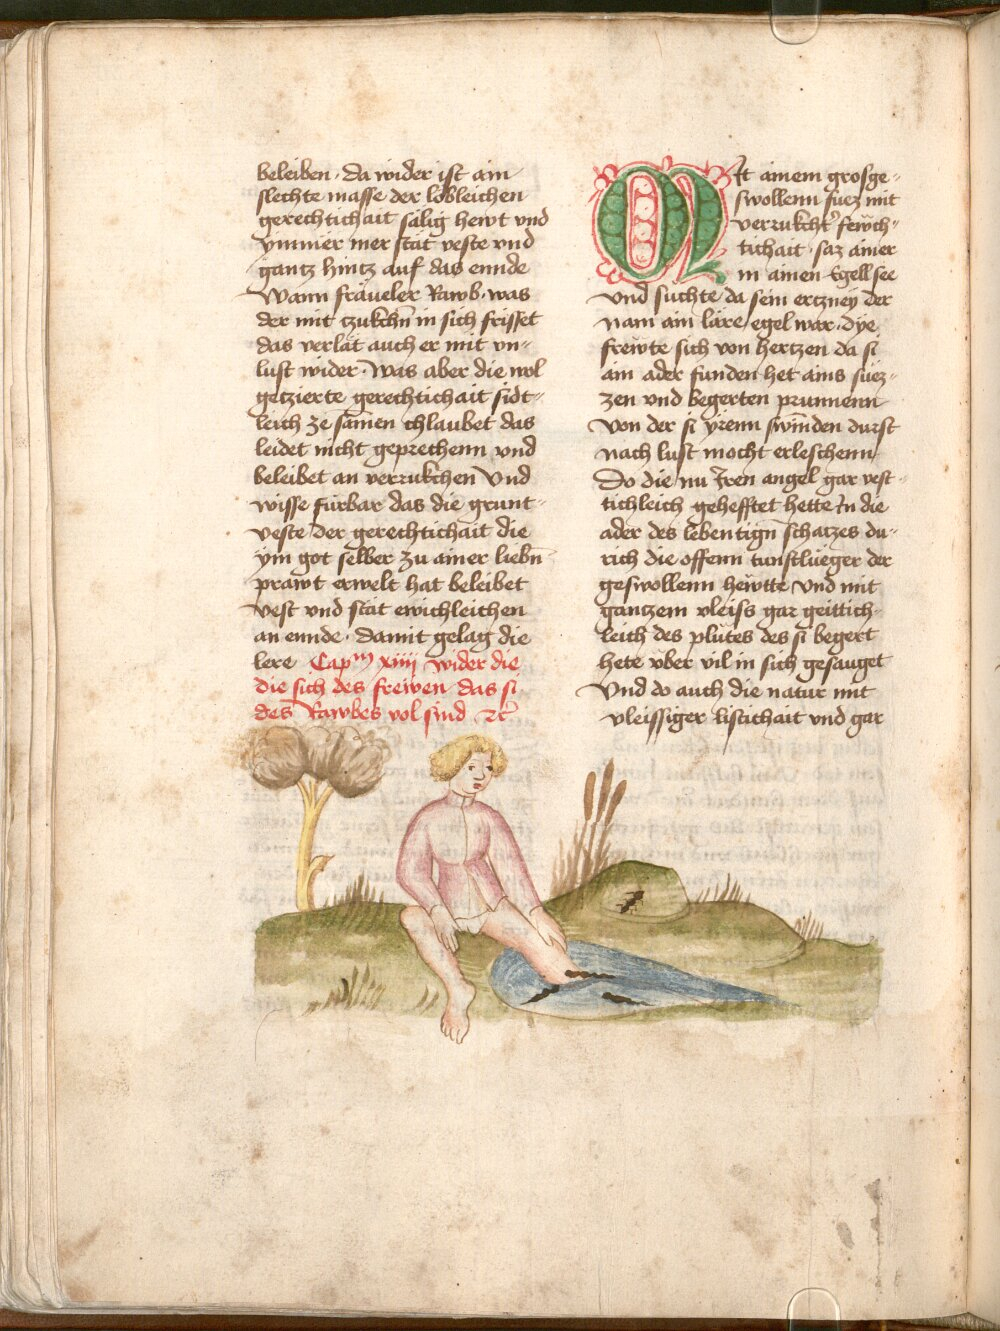 beleiben · da wider ist ain
slechte masse der lobleichen
gerechtichait sälig hewt vnd
ymmer mer stät veste vnd
gantz hintz auf das ennde
Wann fräueler Rawb · was
der mit tzukchn̄ in sich frisset
das verlät auch er mit vn⸗
lust wider · Was aber die wol
getzierte gerechtichait sidt⸗
leich ze samen chlaubet das
leidet nicht geprechenn vnd
beleibet an verzukchen Vnd
wisse fürbar das die grunt⸗
veste der gerechtichait die
ym got selber zu ainer liebn̄
prawt erwelt hat beleibet
vest vnd stät ewichleichen
an ennde · damit gelag die
lere Capm xiiij wider die
die sich des frewen das si
des Rawbes vol sind ⁊c̄
Mit ainem grosge⸗
swollenn fuez mit
verzukcht᷎ fewch⸗
tichait · saz ainer
in ainen Egellsee
Vnd suchte da sein ertzney der
nam ain läre egel war · dye
frewte sich von hertzen da si
ain ader funden het ains süez⸗
zen vnd begerten prunnenn
Von der si yrenn swinden durst
nach lust mocht erleschenn
Do die nu Iren angel gar vest⸗
tichleich gehefftet hette In die
ader des lebentign̄ schatzes du⸗
rich die offenn tunstlueger der
geswollenn hewtte Vnd mit
gantzem vleiss gar geittich⸗
leich des plutes des si begert
hete vber vil in sich gesauget
Vnd do auch die natur mit
vleissiger listichait vnd gar